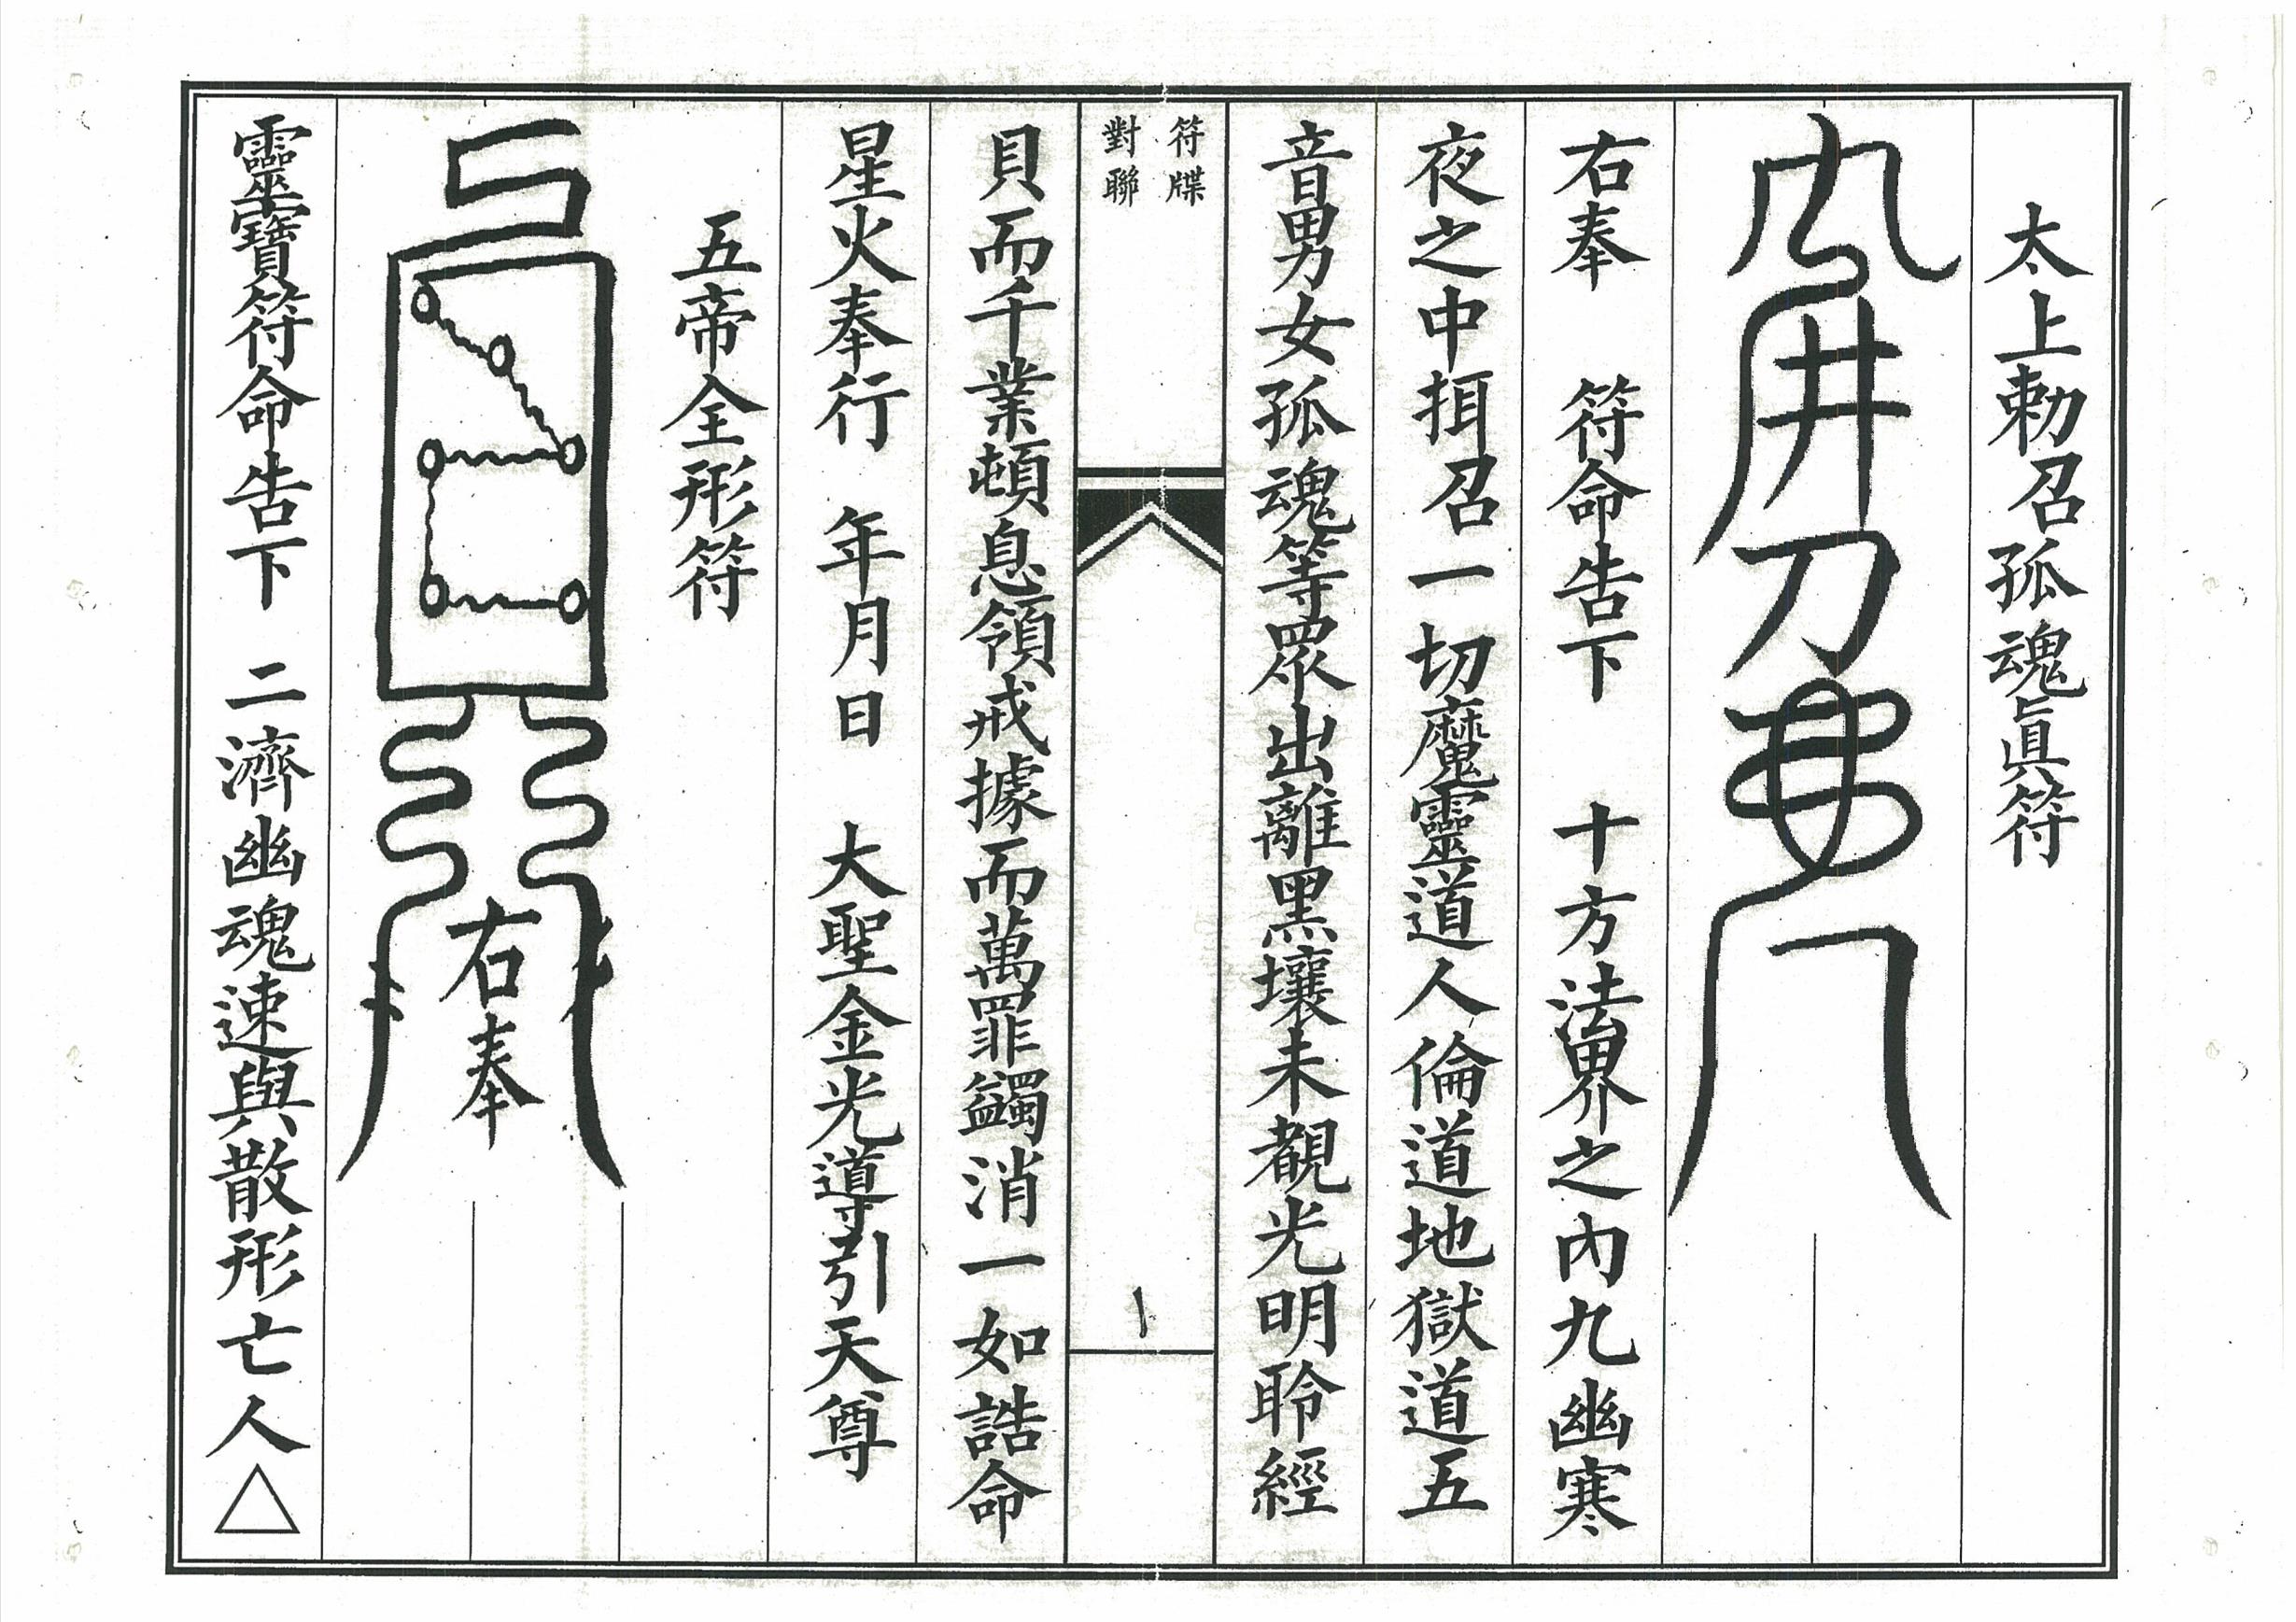 太上勅召孤魂眞符
右奉　符命告下　十方法界之內九幽寒
夜之中拑召一切魔靈道人倫道地獄道五
音男女孤魂等眾出離黑壤未覩光明聆經
符牒
對聯
貝而千業頓息領戒據而萬罪蠲消一如誥命
星火奉行　年月日　大聖金光導引天尊
五帝全形符
右奉
靈寶符命告下　二濟幽魂速與散形亡人△